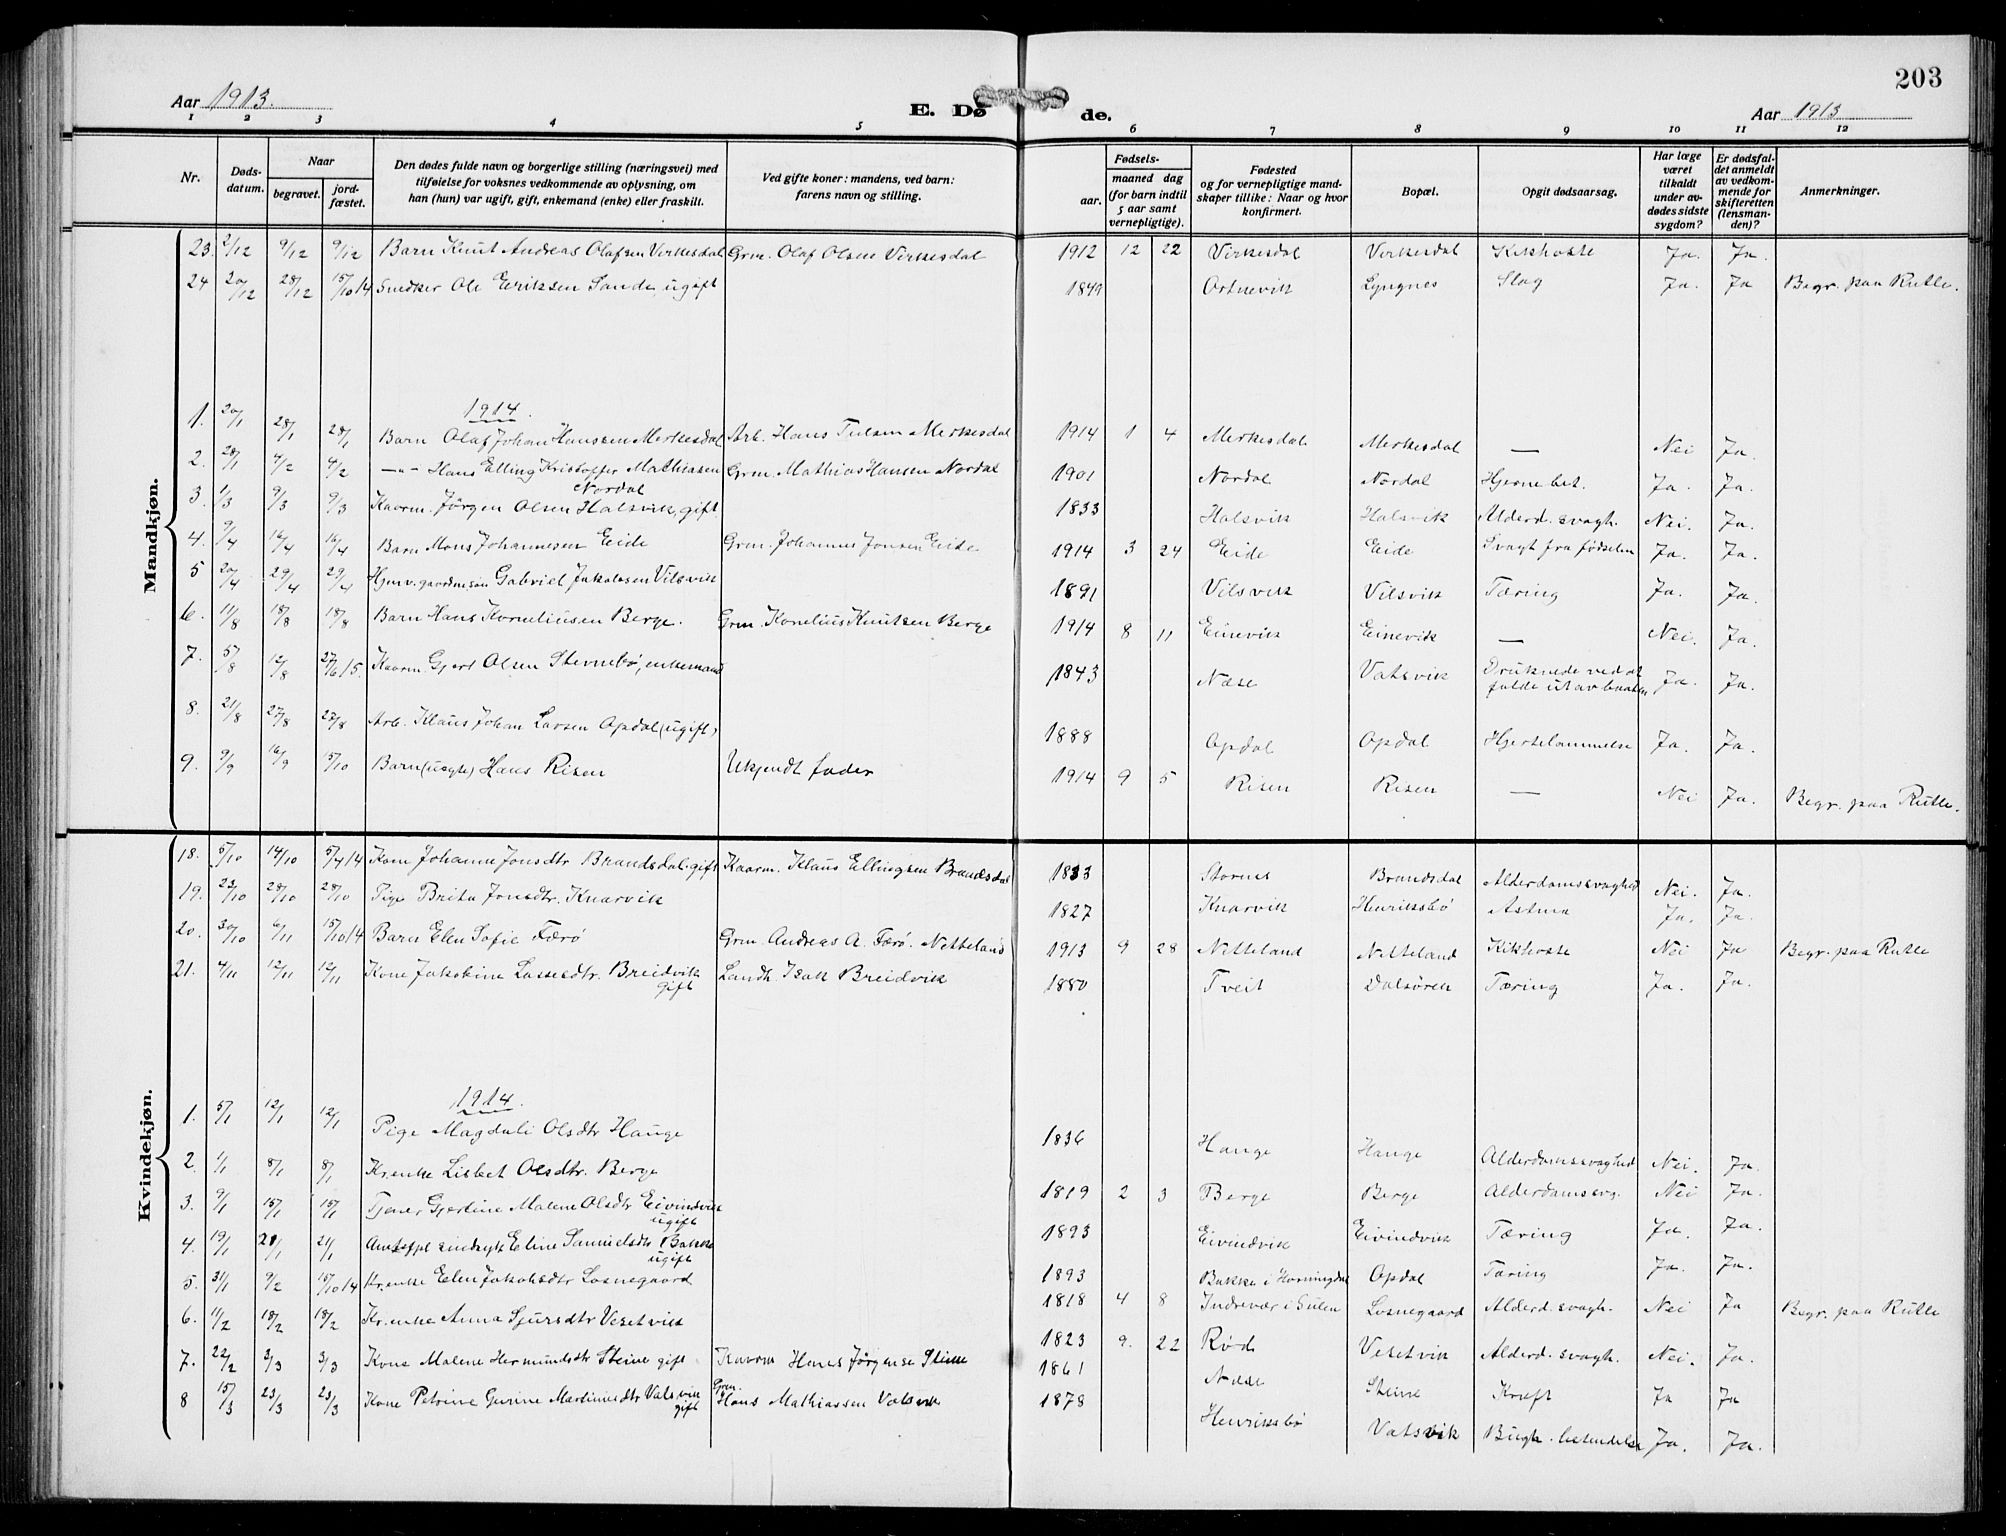 203
Aar 1913.
E. Døde.
Aar 1913
1 2 3 4 5 6 7 8 9 10 11 12
Nr.
Døds-datum.
Naar
begravet.
jord-fæstet.
Den dødes fulde navn og borgerlige stilling (næringsvei) med tilføielse for voksnes vedkommende av oplysning, om han (hun) var ugift, gift, enkemand (enke) eller fraskilt.
Ved gifte koner: mandens, ved barn: farens navn og stilling.
Fødsels-
aar.
maaned dag
(for barn indtil 5 aar samt vernepligtige).
Fødested og for vernepligtige mandskaper tillike: Naar og hvor konfirmert.
Bopæl.
Opgit dødsaarsag.
Har læge været tilkaldt under avdødes sidste sygdom?
Er dødsfaldet anmeldt av vedkommende for skifteretten (lensmanden)?
Anmerkninger.
Mandkjøn.
23. 2/12 9/12 9/12 Barn Knut Andreas Olafsen Virkesdal Grm. Olaf Olsen Virkesdal 1912 12 22 Virkesdal Virkesdal Kikhoste Ja. Ja.
24 20/12 28/12 15/10 14 Snedker Ole Eriksen Sande, ugift 1849 Ortnevik Lyngnes Slag Ja. Ja Begr. paa Rutle.
1914.
1. 20/1 28/1 28/1 Barn Olaf Johan Hanssen Merkesdal Arb. Hans Merkesdal 1914 1 4 Merkesdal Merkesdal — Nei Ja.
2. 28/1 4/2 4/2 —"— Hans Elling Kristoffer Mathiasen Nordal Grm. Mathias Hansen Nordal 1901 Nordal Nordal Hjerne bet. Ja. Ja.
3. 1/3 9/3 9/3 Kaarm. Jørgen Olsen Halsvik, gift 1833 Halsvik Halsvik Alderd. svagh. Nei. Ja.
4. 9/4 16/4 16/4 Barn Mons Johannesen Eide Grm. Johannes Jonsen Eide 1914 3 24 Eide Eide Svagt fra fødselen Ja. Ja.
5 20/4 29/4 29/4 Hjmv. gaardmsøn Gabriel Jakobsen Vilsvik 1891 Vilsvik Vilsvik Tæring Ja. Ja.
6. 11/8 18/8 18/8 Barn Hans Korneliusen Berge. Grm. Kornelius Knutsen Berge 1914 8 11 Einevik Einevik — Nei. Ja.
7. 5/8 12/8 27/6 15. Kaarm. Gjert Olsen Stevnebø, enkemand 1843 Næse Vatsvik Druknede ved at falde ut av baaten Ja. Ja.
8. 21/8 27/8 27/8 Arb. Klaus Johan Larsen Opdal (ugift) 1888 Opdal Opdal Hjertelammelse Ja. Ja.
9. 9/9 16/9 15/10 Barn (uegte) Hans Risen Ukjendt fader 1914 9 5 Risen Risen — Nei Ja. Begr. paa Rutle.
Kvindekjøn.
18. 5/10 14/10 5/4 14 Kone Johanne Jonsdtr Brandsdal. gift Kaarm. Klaus Ellingsen Brandsdal 1833 Brandsdal Alderdomssvaghed Nei. Ja.
19. 23/10 28/10 28/10 Pige Brita Jonsdtr. Knarvik 1827 Knarvik Henriksbø Astma Ja. Ja.
20. 30/10 6/11 15/10 14 Barn Elen Sofie Færø Grm. Andreas A. Færø. Netteland 1913 9 28 Netteland Netteland Kikhoste Nei Ja Begr. paa Rutle
21. 4/11 12/11 12/11 Kone Jakobine Lassesdtr. Breidvik gift Landh. Isak Breidvik 1880 Tveit Dalsøren Tæring Ja. Ja.
1914.
1. 5/1 12/1 12/1 Pige Magdali Olsdtr Hauge 1836 Hauge Hauge Alderdomssvaghed Nei. Ja.
2. 1/1 8/1 8/1 Kr.enke Lisbet Olsdtr. Berge 1819 2 3 Berge Berge Alderdomssvg. Nei Ja.
3. 9/1 15/1 15/1 Tjener Gjertine Malene Olsdtr Eivindvik ugift 1893 Eivindvik Eivindvik Tæring Ja. Ja.
4. 19/1 21/1 21/1 Amtsfpl. sindsyk Eline Samuelsdtr Bakke ugift 1893 Bakke i Horningdal Opdal Tæring Ja. Ja.
5. 31/1 9/2 15/10 14 Kr.enke Elen Jakobsdtr Losnegaard 1818 4 8 Indrevær i Sulen Losnegaard Alderd. svagh. Nei Ja Begr. paa Rutle
6. 11/2 18/2 18/2 Kr.enke Anna Sjursdtr Vesetvik 1823 9. 22 Rød Vesetvik Alderd. svagh. Nei. Ja.
7. 22/2 3/3 3/3 Kone Malene Hermundsdtr Steine gift Kaarm Hans Jørgense Stine 1861 Næse Steine Kræft Ja Ja
8 15/3 23/3 23/3 Kone Petrine Gurine Martinusdtr Vatsvik gift Grm. Hans Mathiassen Vatsvik 1878 Henriksbø Vatsvik Bugh. betendelse Ja. Ja.